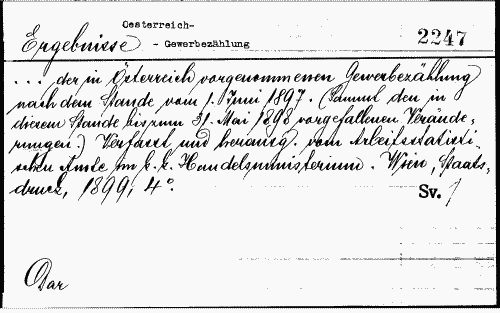 Oesterreich-
Ergebnisse - Gewerbezählung 2247
... der in Österreich vorgenommenen Gewerbezählung
nach dem Stande vom 1. Juni 1897. (Sammt den in
diesem Stande bis zum 31. Mai 1898 vorgefallenen Verände-
rungen.) Verfasst und herausg. vom Arbeitsstatisti-
schen Amte im k. k. Handelsministerium. Wien, Staats-
druck, 1899, 4°.
Sv. 1
Dar